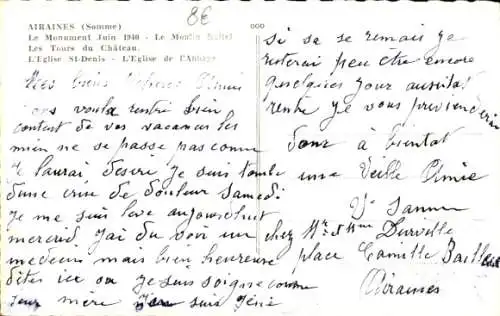 8€
AIRAINES (Somme)
Le Monument Juin 1940 - Le Moulin
Les Tours du Château.
L'Eglise St-Denis - L'Eglise de l'Abbaye
Mes biens Amis
vous voulà rentré bien
content de vos vacances les
mien ne se passe pas comme
je laurai desiré je suis tombé
dune crise de douleur Samedi
je me suis levé aujourdhuit
mercrid j'ai du voir un
medecin mais bien heureuse
dites ici on je suis soigné comme
leur mère suis géné
si sa se remais je
resterai peu etre encore
quelques jour aussitot
rentré je vous previenderai
donc à bientot
une Veille Amie
chez Mr & Mme
place Camille
Airaines